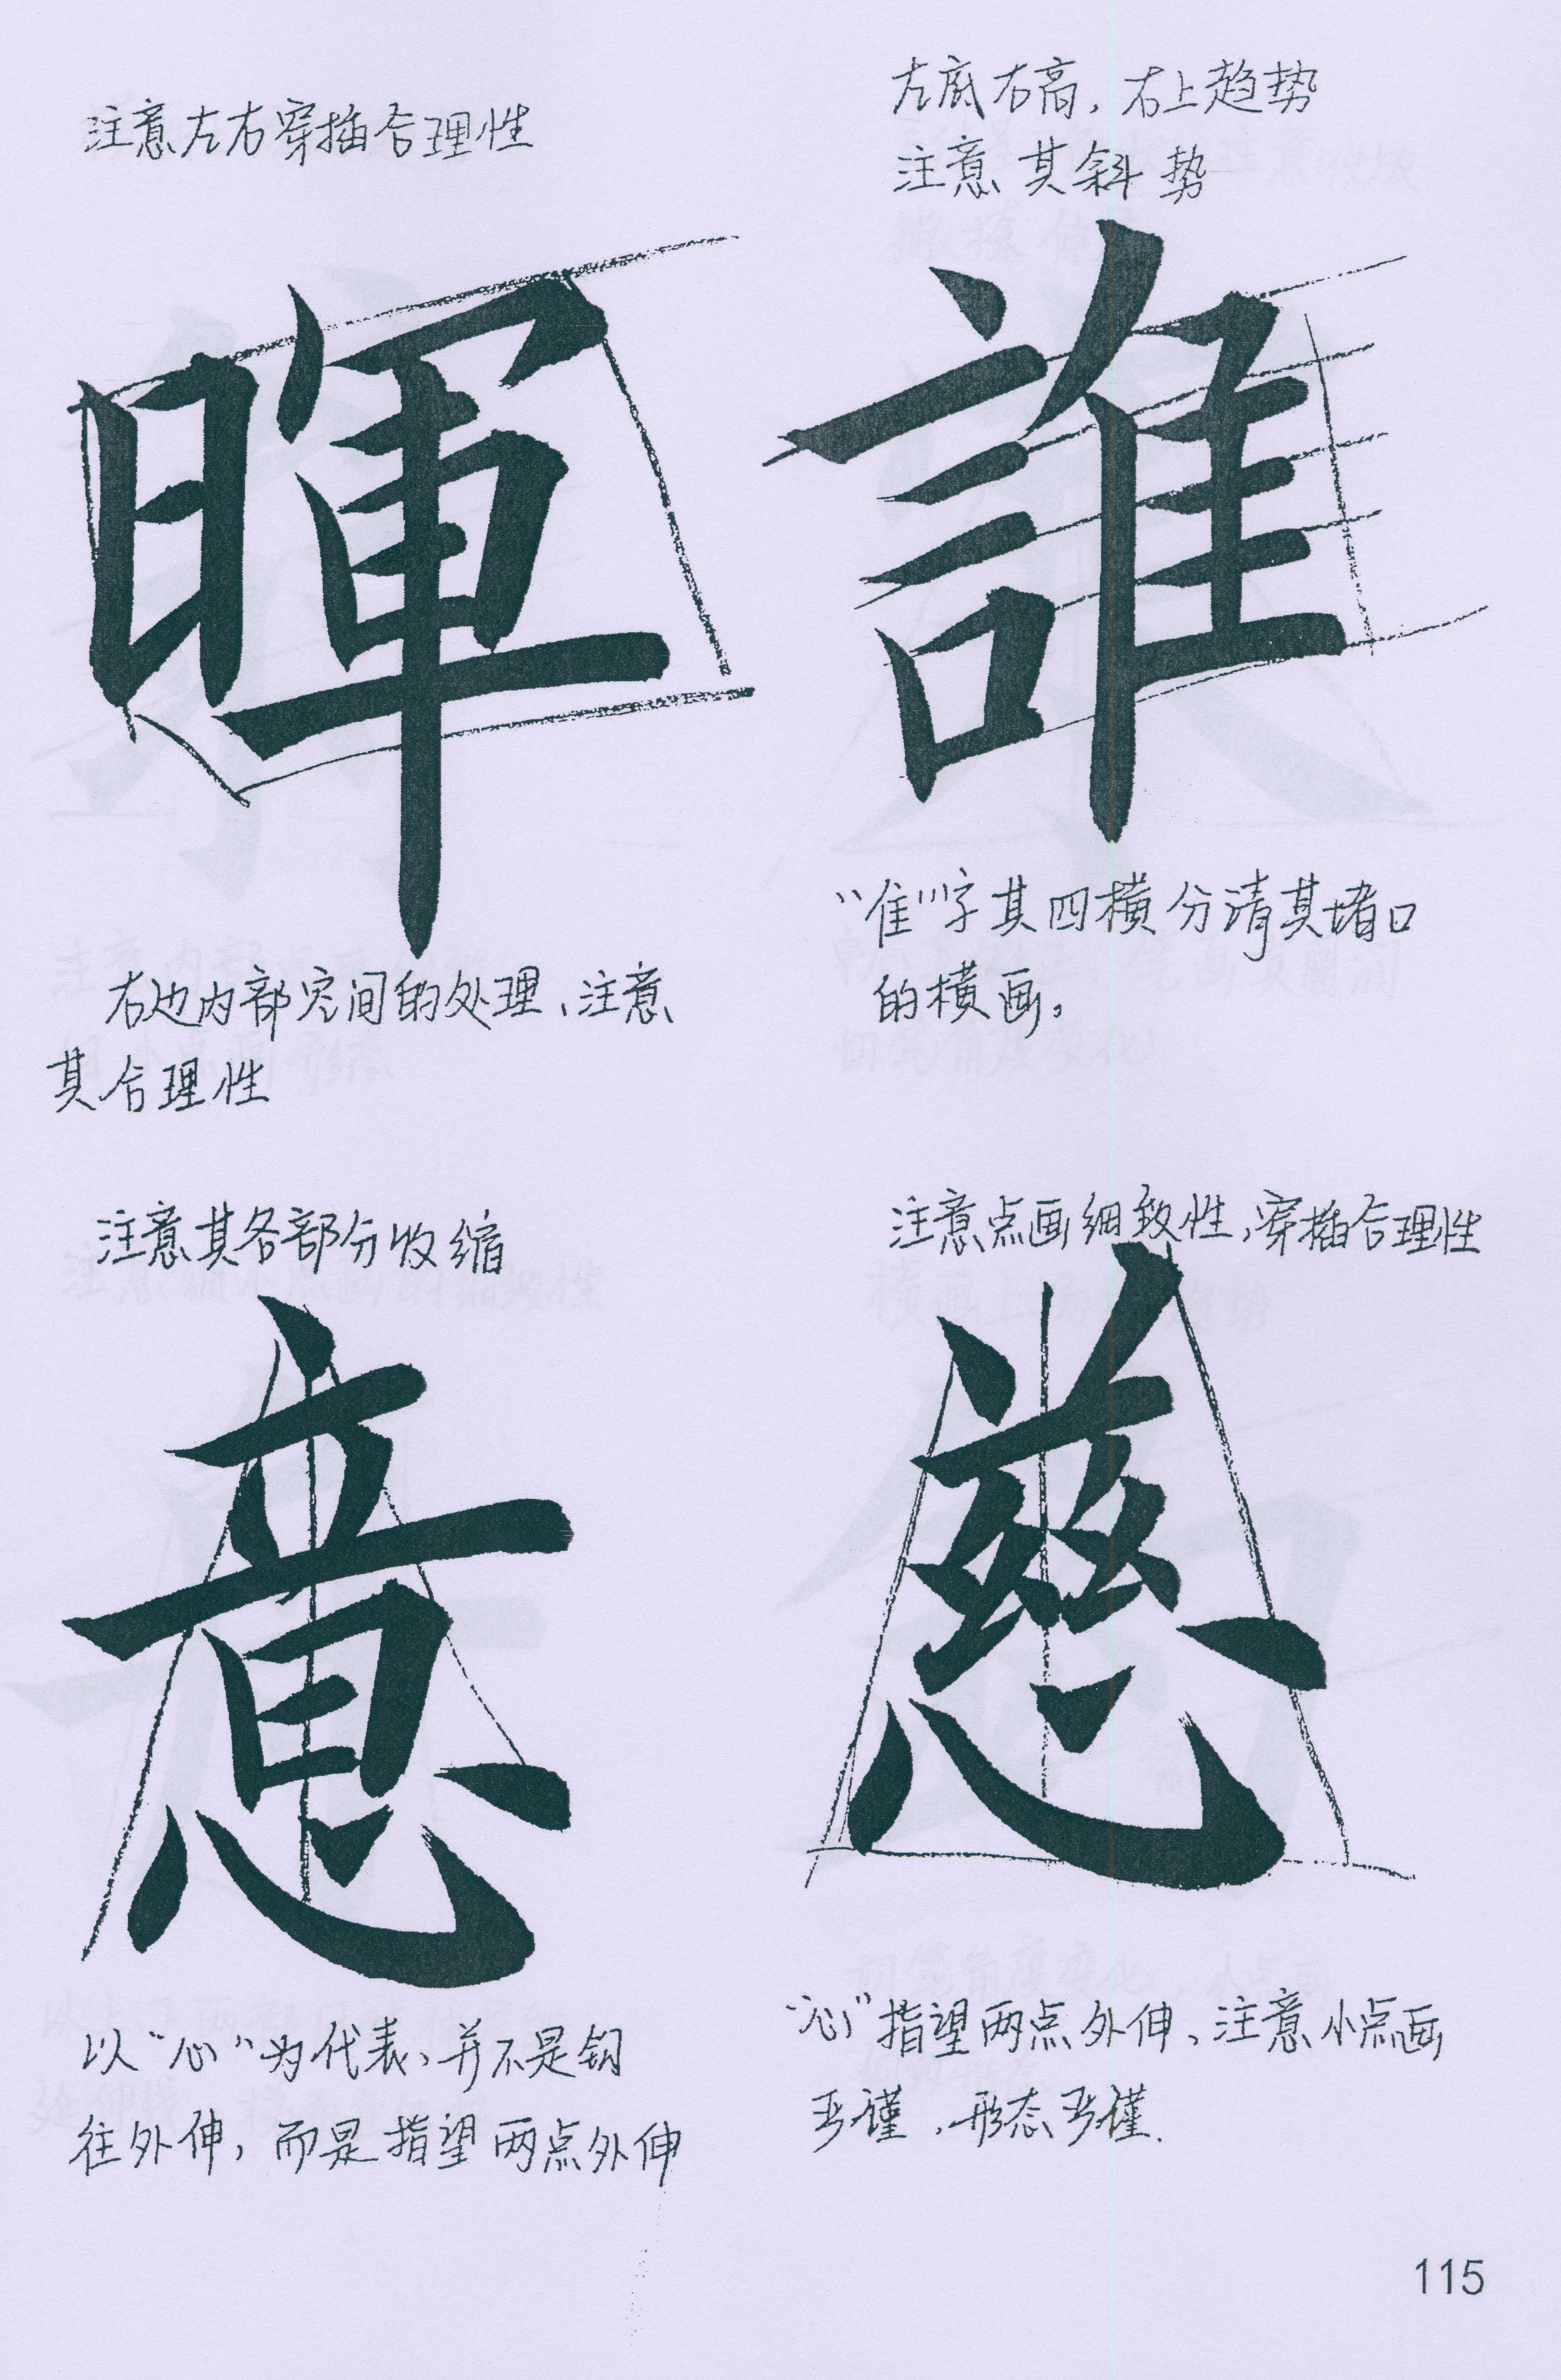 注意左右穿插合理性
暉
右边内部空间的处理、注意
其合理性
左底右高，右上趋势
注意其斜势
誰
“隹”字其四横分清其堵口
的横画。
注意其各部分收缩
意
以“心”为代表，并不是钩
往外伸，而是指望两点外伸
注意点画细致性，穿插合理性
慈
“心”指望两点外伸、注意小点画
严谨，形态严谨.
115